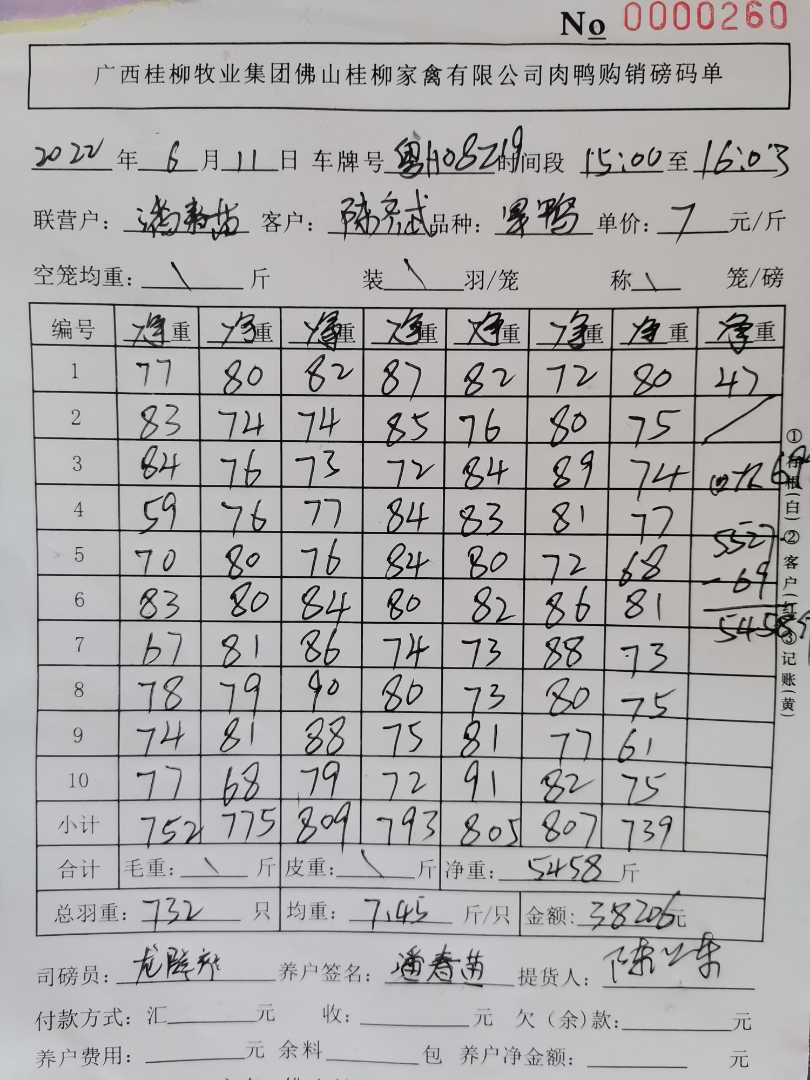 No 0000260
广西桂柳牧业集团佛山桂柳家禽有限公司肉鸭购销磅码单
2022 年 6 月 11 日 车牌号 粤H08Z19 时间段 15:00 至 16:03
联营户: 潘春苗 客户: 品种: 单价: 7 元/斤
空笼均重: \ 斤 装 \ 羽/笼 称 \ 笼/磅
编号 净重 净重 净重 净重 净重 净重 净重 净重
1 77 80 82 87 82 72 80 47
2 83 74 74 85 76 80 75 /
3 84 76 73 72 84 89 74
4 59 76 77 84 83 81 77
5 70 80 76 84 80 72 68 5527
6 83 80 84 80 82 86 81 -69
7 67 81 86 74 73 88 73 5458
8 78 79 90 80 73 80 75
9 74 81 88 75 81 77 61
10 77 68 79 72 91 82 75
小计 752 775 809 793 805 807 739
合计 毛重: \ 斤 皮重: \ 斤 净重: 5458 斤
总羽重: 732 只 均重: 7.45 斤/只 金额: 38206 元
司磅员: 养户签名: 潘春苗 提货人:
付款方式: 汇 元 收: 元 欠(余)款: 元
养户费用: 元 余料 包 养户净金额: 元
①存根(白)②客户(红)③记账(黄)